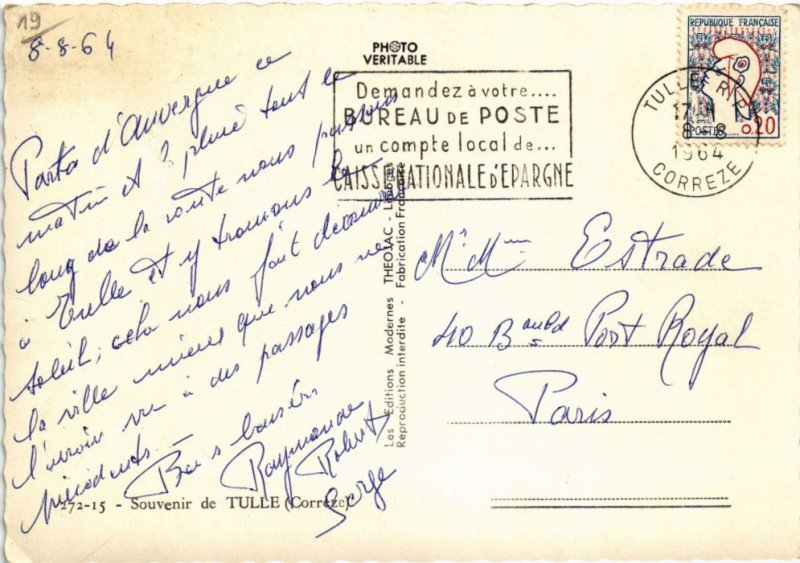 19
8-8-64
Partis d'Auvergne ce
matin et a pleuré tout le
long de la route nous passons
à Tulle et y trouvons le
soleil, cela nous fait découvrir
la ville mieux que nous ne
l'avons vu à des passages
précédents -
Bons baisers
Raymonde
Robert
Serge
272-15 - Souvenir de TULLE (Corrèze)
PHOTO
VERITABLE
Demandez à votre....
BUREAU DE POSTE
un compte local de...
CAISSE NATIONALE d'EPARGNE
TULLE R.P.
17
8-8
1964
CORREZE
REPUBLIQUE FRANÇAISE
POSTES
0.20
Les Editions Modernes THEOJAC - Limoges
Reproduction interdite - Fabrication Française
Mr Mme Estrade
40 Bould Port Royal
Paris